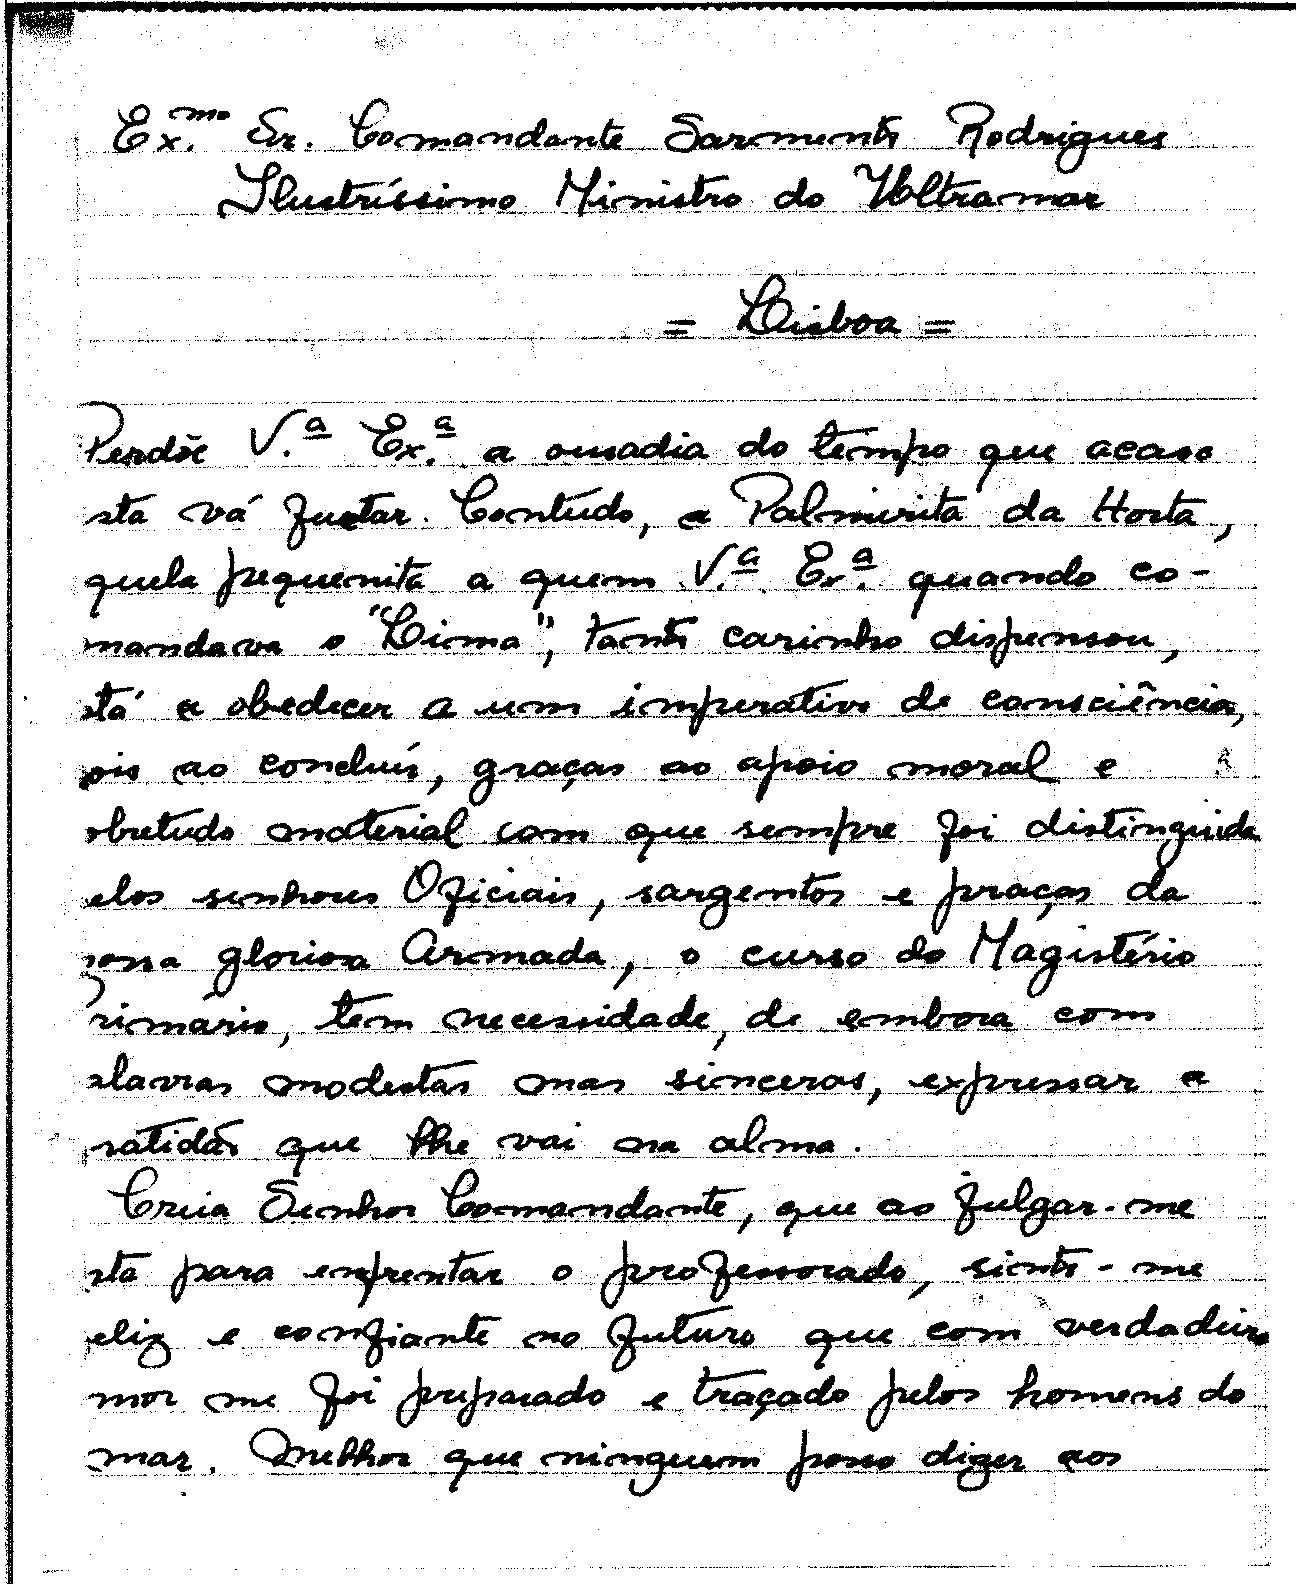 Ex.mo Sr. Comandante Sarmento Rodrigues
Ilustríssimo Ministro do Ultramar
= Lisboa =
Perdõe V.ª Ex.ª a ousadia do tempo que acaso
sta vá furtar. Contudo, a Palmirita da Horta,
quela pequenita a quem V.ª Ex.ª quando co-
mandava o "Lima", tanto carinho dispensou,
stá a obedecer a um imperativo de consciência,
ois ao concluír, graças ao apoio moral e
obretudo material com que sempre foi distinguida
elos senhores Oficiais, sargentos e praças da
ossa gloriosa Armada, o curso do Magistério
rimário, tem necessidade, de embora com
alavras modestas mas sinceras, expressar a
ratidão que lhe vai na alma.
Creia Senhor Comandante, que ao julgar-me
sta para enfrentar o professorado, sinto-me
eliz e confiante no futuro que com verdadeiro
mor me foi preparado e traçado pelos homens do
mar. Melhor que ninguem posso dizer aos